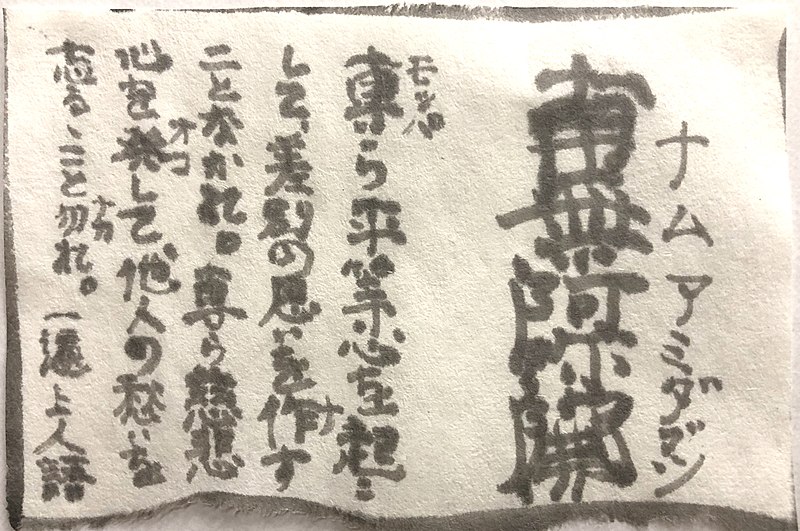 ナムアミダブツ
南無阿弥陀佛
モッパ
専ら平等心を起こ
して、差別の思いを作す
ナ
ことなかれ。専ら慈悲
オコ
心を発して、他人の愁いを
ナカ
忘るゝこと勿れ。一遍上人語